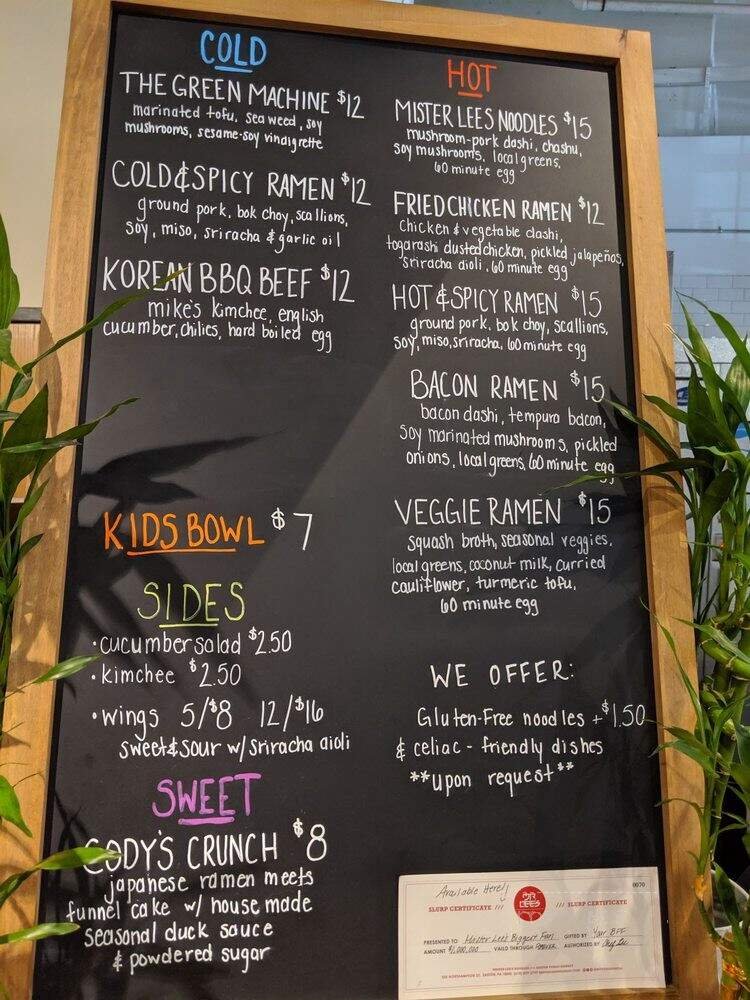 COLD
THE GREEN MACHINE $12
marinated tofu, seaweed, soy
mushrooms, sesame-soy vinaigrette
COLD & SPICY RAMEN $12
ground pork, bok choy, scallions,
soy, miso, sriracha & garlic oil
KOREAN BBQ BEEF $12
mike's kimchee, english
cucumber, chilies, hard boiled egg
KIDS BOWL $7
SIDES
• cucumber salad $2.50
• kimchee $2.50
• wings 5/$8 12/$16
sweet & sour w/ sriracha aioli
SWEET
CODY'S CRUNCH $8
japanese ramen meets
funnel cake w/ house made
seasonal duck sauce
& powdered sugar
HOT
MISTER LEES NOODLES $15
mushroom-pork dashi, chashu,
soy mushrooms, local greens,
60 minute egg
FRIED CHICKEN RAMEN $12
Chicken & vegetable dashi,
togarashi dusted chicken, pickled jalapeños,
sriracha aioli, 60 minute egg
HOT & SPICY RAMEN $15
ground pork, bok choy, scallions,
soy, miso, sriracha, 60 minute egg
BACON RAMEN $15
bacon dashi, tempura bacon,
soy marinated mushrooms, pickled
onions, local greens, 60 minute egg
VEGGIE RAMEN $15
squash broth, seasonal veggies,
local greens, coconut milk, curried
cauliflower, turmeric tofu,
60 minute egg
WE OFFER:
Gluten-Free noodles + $1.50
& celiac - friendly dishes
**upon request**
Available Here!
0070
SLURP CERTIFICATE /// MR LEES /// SLURP CERTIFICATE
PRESENTED TO Mister Lee's Biggest Fan GIFTED BY Your BFF
AMOUNT $1,000,000 VALID THROUGH FOREVER AUTHORIZED BY